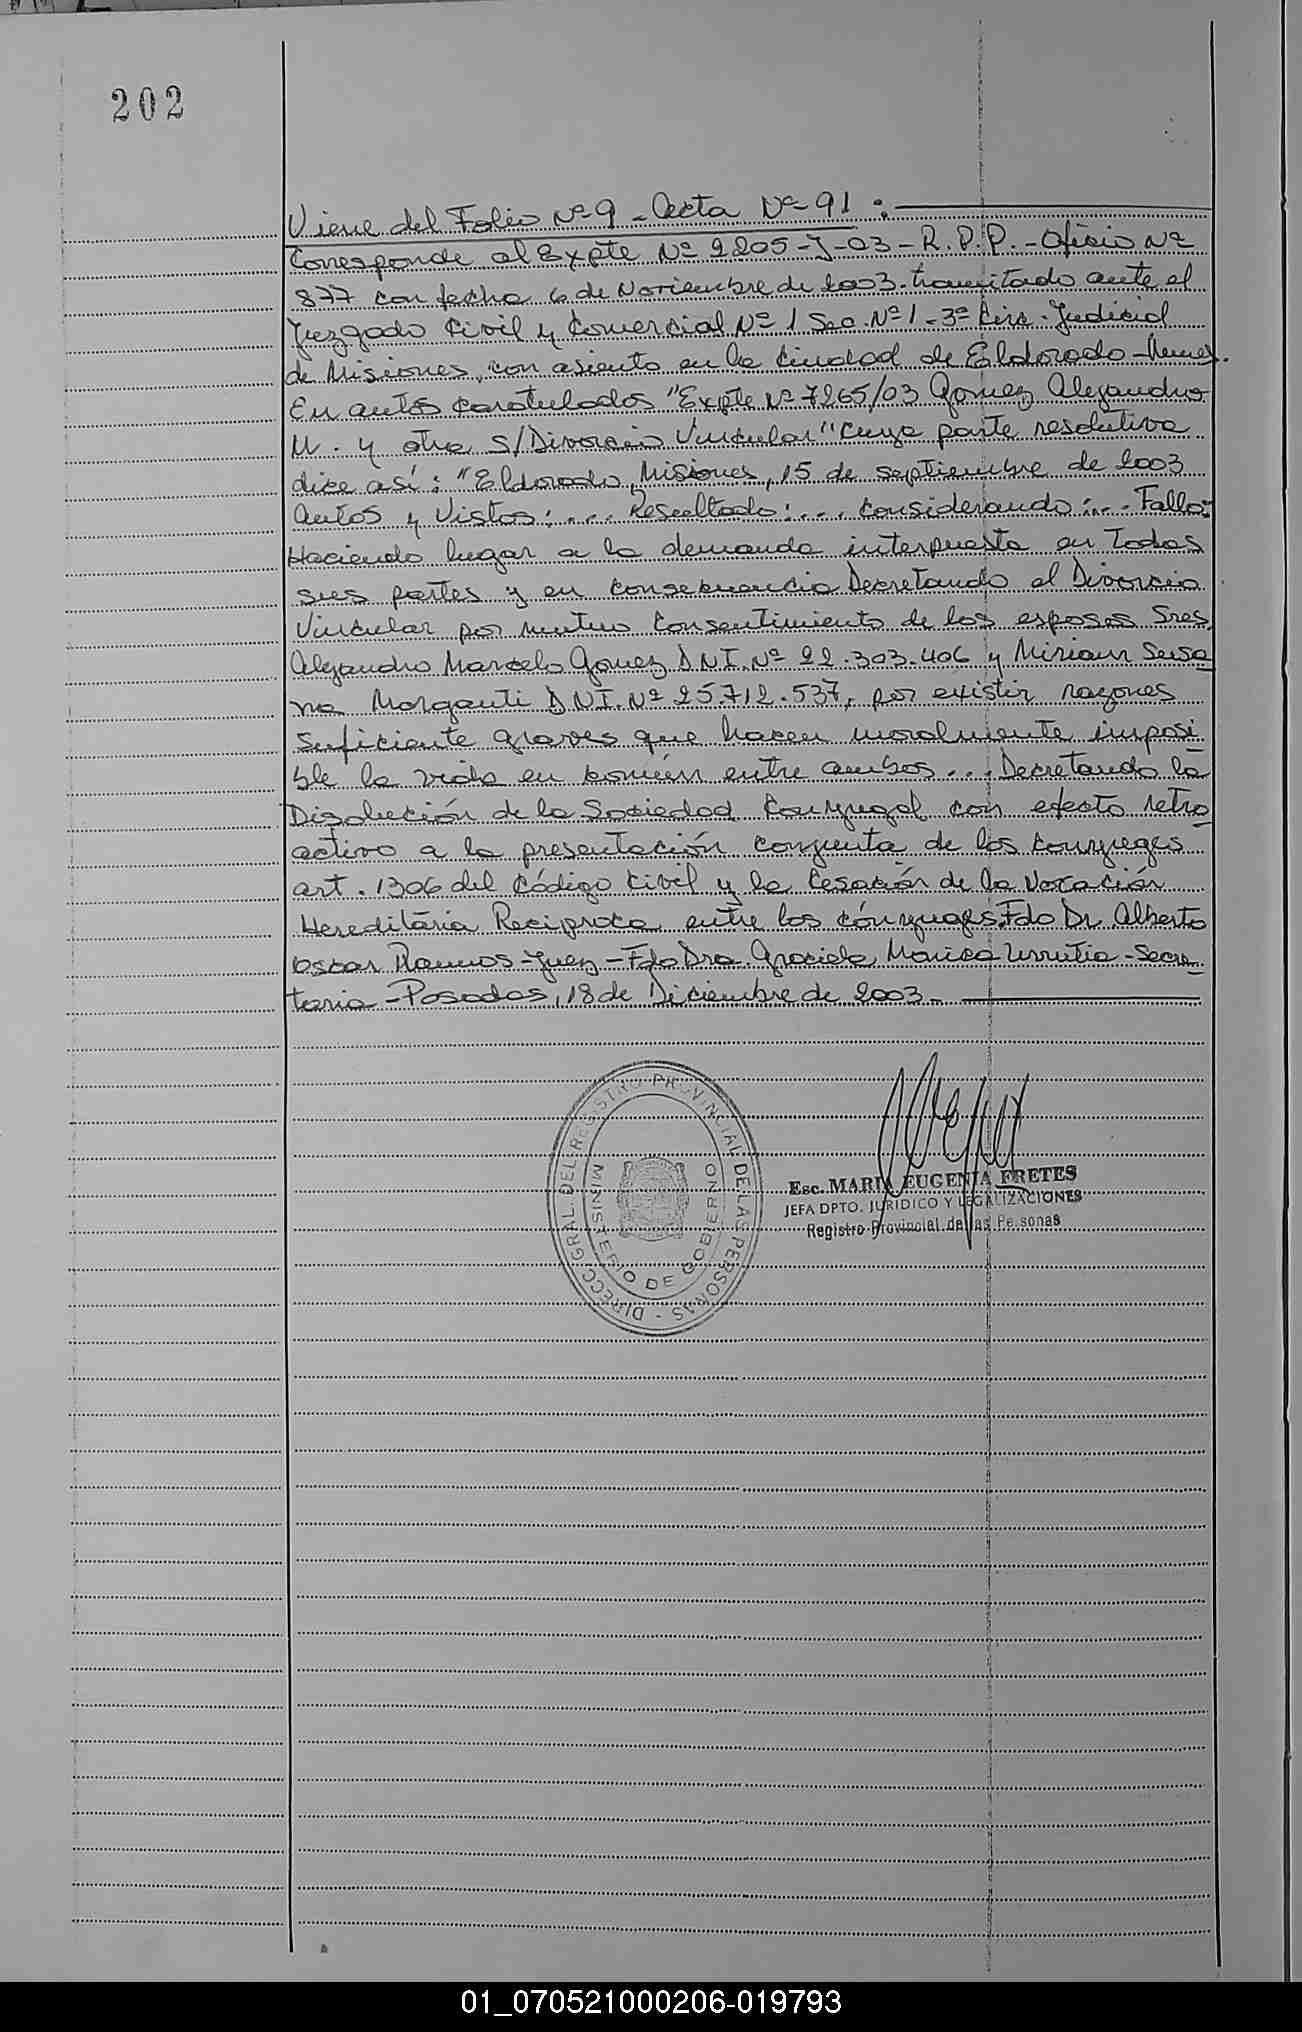 202
Viene del Folio Nº 9 - Acta Nº 91 :
Corresponde al Expte Nº 2205-J-03-R.P.P.-Oficio Nº
877 con fecha 6 de Noviembre de 2003. tramitado ante el
Juzgado Civil y Comercial Nº 1 Sec. Nº 1 - 3ª Circ. Judicial
de Misiones, con asiento en la Ciudad de Eldorado -
En autos caratulados "Expte Nº 7265/03 Gomez Alejandro
M. y otra S/Divorcio Vincular" cuya parte resolutiva
dice así: "Eldorado, Misiones, 15 de septiembre de 2003
Autos y Vistos: ... Resultado: ... Considerando: ... Fallo:
Haciendo lugar a la demanda interpuesta en Todas
sus partes y en consecuencia Decretando el Divorcio
Vincular por mutuo Consentimiento de los esposos Sres
Alejandro Marcelo Gomez DNI. Nº 22.303.406 y Miriam Susa
na Morganti DNI. Nº 25.712.537, por existir razones
Suficiente graves que hacen moralmente imposi
ble la vida en común entre ambos ... Decretando la
Disolución de la Sociedad Conyugal con efecto retro
activo a la presentación conjunta de los conyuges
art. 1306 del Código Civil y la Cesación de la Vocación
Hereditária Reciproca entre los cónyuges. Fdo Dr. Alberto
Oscar Ramos - Juez - Fdo Dra. Graciela Monica Urrutia - Secre
taria - Posadas, 18 de Diciembre de 2003 -
DIRECC. GRAL. DEL REGISTRO PROVINCIAL DE LAS PERSONAS -
MINISTERIO DE GOBIERNO
Esc. MARIA EUGENIA FRETES
JEFA DPTO. JURIDICO Y LEGALIZACIONES
Registro Provincial de las Personas
01_070521000206-019793